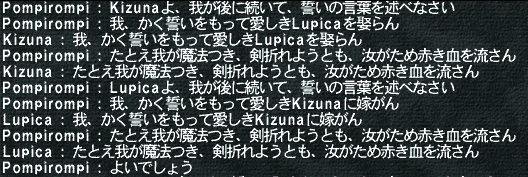 Pompirompi : Kizunaよ、我が後に続いて、誓いの言葉を述べなさい
Pompirompi : 我、かく誓いをもって愛しきLupicaを娶らん
Kizuna : 我、かく誓いをもって愛しきLupicaを娶らん
Pompirompi : たとえ我が魔法つき、剣折れようとも、汝がため赤き血を流さん
Kizuna : たとえ我が魔法つき、剣折れようとも、汝がため赤き血を流さん
Pompirompi : Lupicaよ、我が後に続いて、誓いの言葉を述べなさい
Pompirompi : 我、かく誓いをもって愛しきKizunaに嫁がん
Lupica : 我、かく誓いをもって愛しきKizunaに嫁がん
Pompirompi : たとえ我が魔法つき、剣折れようとも、汝がため赤き血を流さん
Lupica : たとえ我が魔法つき、剣折れようとも、汝がため赤き血を流さん
Pompirompi : よいでしょう